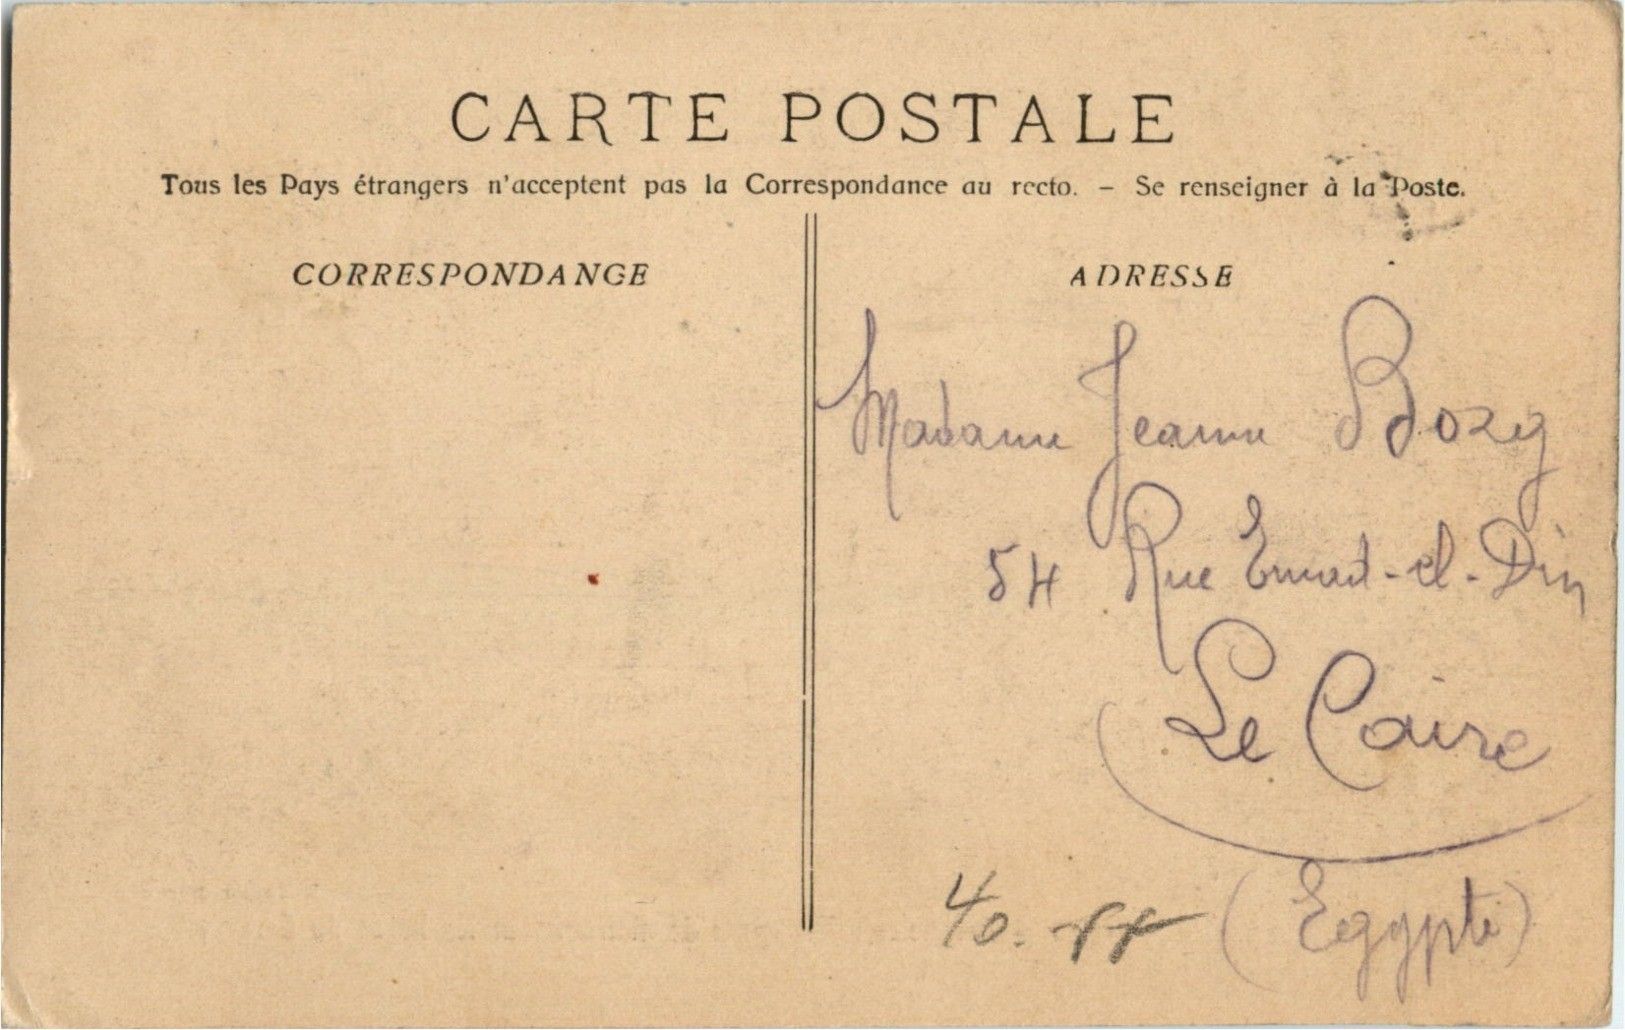 CARTE POSTALE
Tous les Pays étrangers n'acceptent pas la Correspondance au recto. – Se renseigner à la Poste.
CORRESPONDANCE
ADRESSE
Madame Jeanne Borg
54 Rue Emad-el-Din
Le Caire
(Egypte)
40.